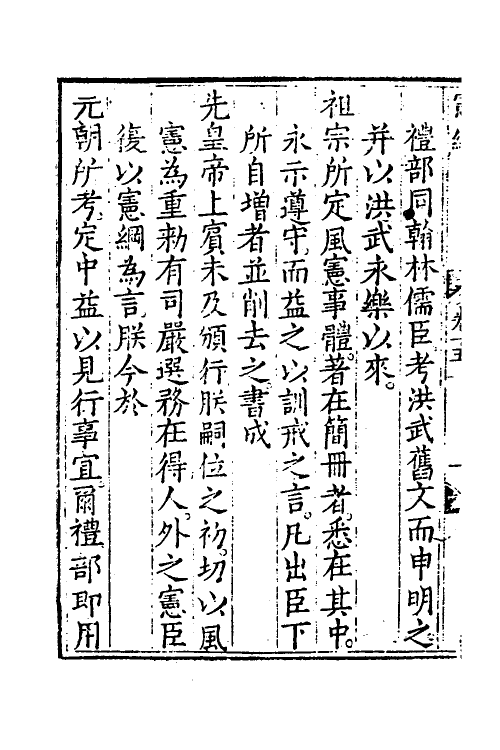 禮部同翰林儒臣考洪武舊文而申明之
并以洪武永樂以來。
祖宗所定風憲事體。著在簡冊者。悉在其中。
永示遵守。而益之以訓戒之言。凡出臣下
所自増者並削去之。書成
先皇帝上賓未及頒行朕嗣位之初。切以風
憲為重。勑有司嚴選務在得人。外之憲臣
復以憲綱為言。朕今於
元朝所考。定中益以見行事宜。爾禮部即用